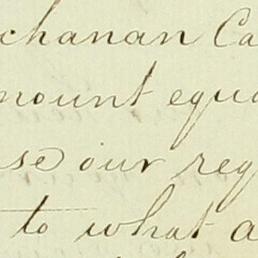 chanan Ca
mount equa
se our reg
to what a